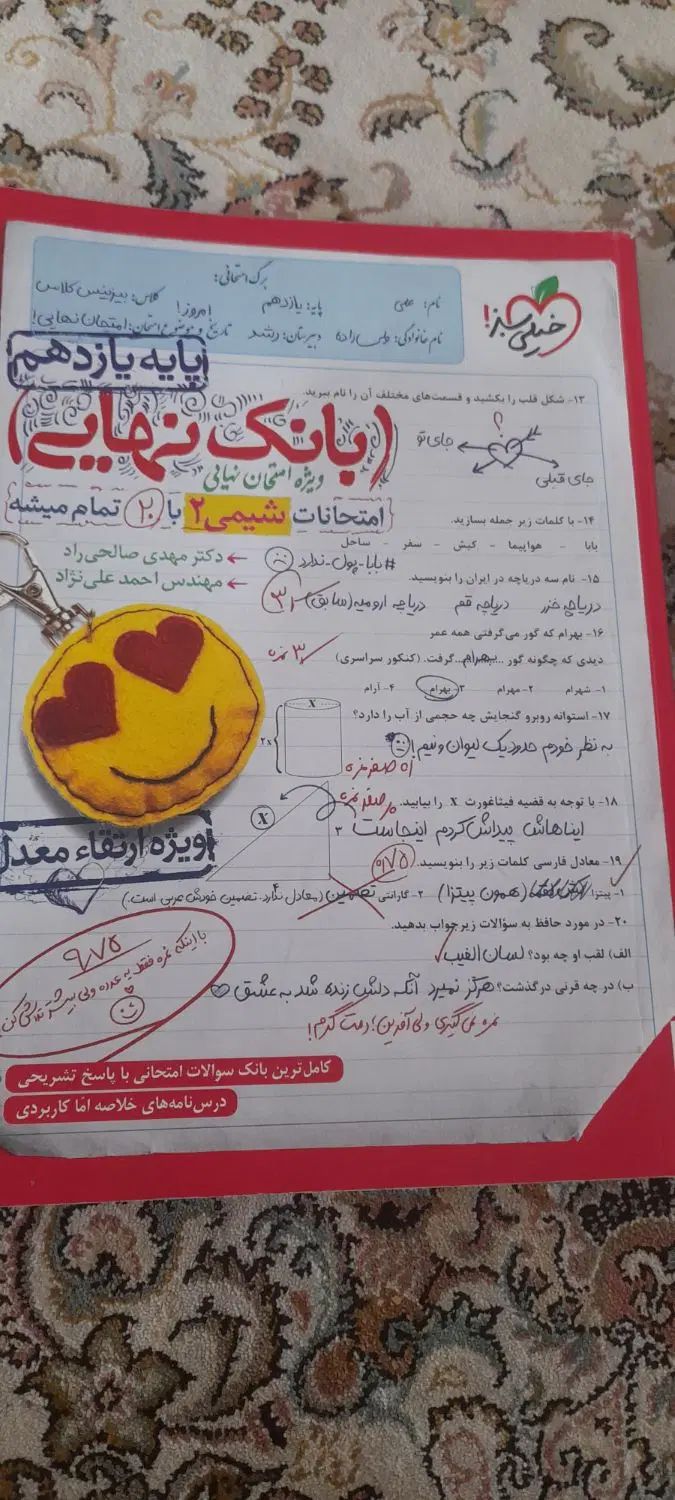 خیلی سبز!
برگ امتحانی:
نام: علی
پایه: یازدهم
کلاس: بیزینس کلاس
نام خانوادگی: ولی زاده
دبیرستان: رشد
تاریخ و موضوع امتحان: امروز! امتحان نهایی!
پایه یازدهم
(بانک نهایی)
ویژه امتحان نهایی
{امتحانات شیمی ۲ با ۲۰ تمام میشه}
← دکتر مهدی صالحی‌راد
← مهندس احمد علی‌نژاد
۱۳- شکل قلب را بکشید و قسمت‌های مختلف آن را نام ببرید.
؟
جای تو
جای قبلی
۱۴- با کلمات زیر جمله بسازید.
بابا - هواپیما - کیش - سفر - ساحل
#بابا-پول-ندارد
۱۵- نام سه دریاچه در ایران را بنویسید.
دریاچه خزر دریاچه قم دریاچه ارومیه (سابق)
۱۶- بهرام که گور می‌گرفتی همه عمر
دیدی که چگونه گور ...بهرام...گرفت. (کنکور سراسری)
۳ نمره
۱- شهرام ۲- مهرام ۳- بهرام ۴- آرام
۱۷- استوانه روبرو گنجایش چه حجمی از آب را دارد؟
x
۲x
به نظر خودم حدود یک لیوان و نیم!
نه صفر نمره
۱۸- با توجه به قضیه فیثاغورث x را بیابید.
صفر نمره
x
۳
۴
ایناهاش پیداش کردم اینجاست
۱۹- معادل فارسی کلمات زیر را بنویسید.
۰/۷۵
ویژه ارتقاء معدل
۱- پیتزا (همون پیتزا) ۲- گارانتی تضمین (معادل ندارد. تضمین خودش عربی است.)
۲۰- در مورد حافظ به سؤالات زیر جواب بدهید.
الف) لقب او چه بود؟ لسان الغیب
ب) در چه قرنی درگذشت؟ هرگز نمیرد آنکه دلش زنده شد به عشق
نمره نمی‌گیری ولی آفرین! دمت گرم!
۹/۷۵
با اینکه نمره فقط یه عدده ولی بیشتر تلاش کن
کامل‌ترین بانک سوالات امتحانی با پاسخ تشریحی
درس‌نامه‌های خلاصه اما کاربردی